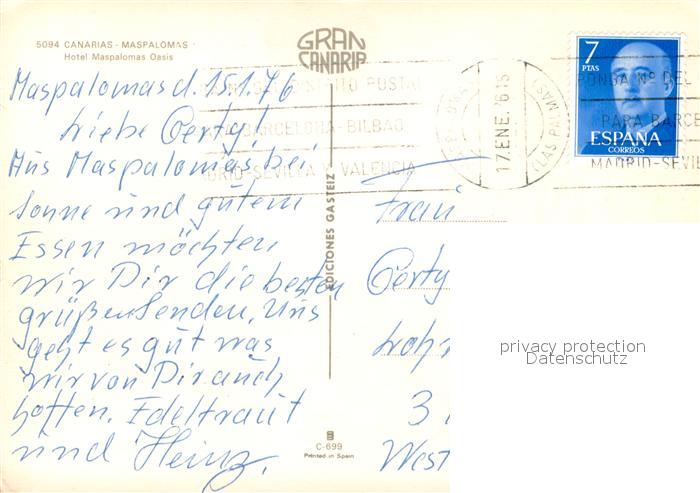 5094 CANARIAS - MASPALOMAS
Hotel Maspalomas Oasis
GRAN
CANARIA
Maspalomas d. 15.1.76
Liebe Gerty!
Aus Maspalomas, bei
Sonne und gutem
Essen möchten
wir Dir die besten
grüße senden. Uns
geht es gut was
wir von Dir auch
hoffen. Edeltraut
und Heinz.
EDICIONES GASTEIZ
C-699
Printed in Spain
7
PTAS
ESPAÑA
CORREOS
17.ENE.76
(LAS PALMAS)
PONGA Nº DEL
PARA BARCE
MADRID-SEVIL
BARCELONA-BILBAO
DRID-SEVILLA Y VALENCIA
Frau
Gerty
3
West
privacy protection
Datenschutz